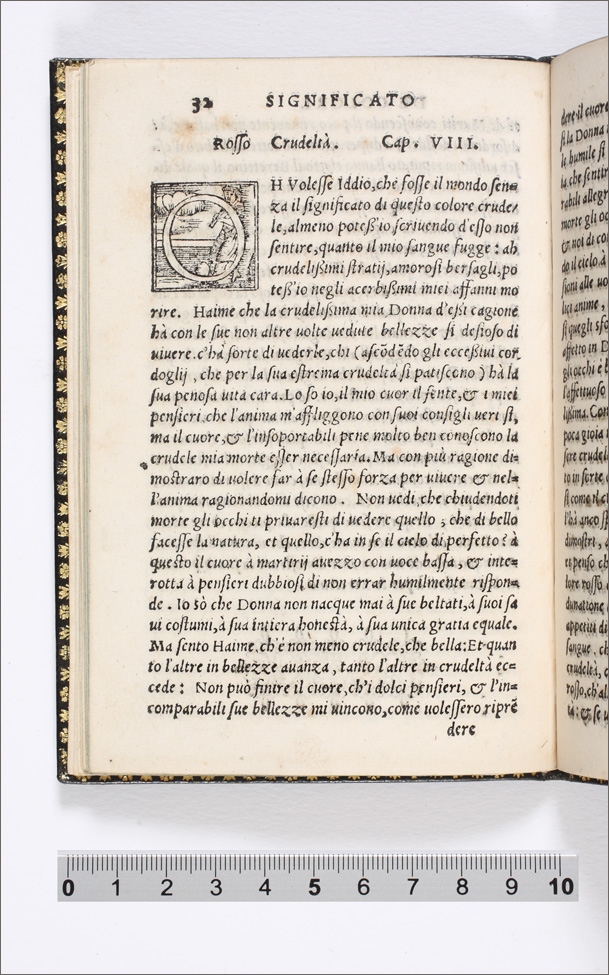 32 SIGNIFICATO
Rosso Crudeltà. Cap. VIII.
OH Volesse Iddio, che fosse il mondo sen=
za il significato di questo colore crude/
le, almeno potess'io scriuendo d'esso non
sentire, quanto il mio sangue fugge: ah
crudelissimi stratij, amorosi bersagli, po
tess'io negli acerbissimi miei affanni mo
rire. Haime che la crudelissima mia Donna d'essi cagione
hà con le sue non altre uolte uedute bellezze si desioso di
uiuere. c'hà sorte di uederle, chi (ascōdēdo gli eccessiui cor
dogli, che per la sua estrema crudeltà si patiscono) hà la
sua penosa uita cara. Lo so io, il mio cuor il sente, & i miei
pensieri, che l'anima m'affliggono con suoi consigli ueri si,
ma il cuore, & l'insoportabili pene molto ben conoscono la
crudele mia morte esser necessaria. Ma con più ragione di=
mostraro di uolere far à se stesso forza per uiuere & nel=
l'anima ragionandomi dicono. Non uedi, che chiudendoti
morte gli occhi ti priuaresti di uedere quello, che di bello
facesse la natura, et quello, c'ha in se il cielo di perfetto è à
questo il cuore à martirij auezzo con uoce bassa, & inte=
rotta à pensieri dubbiosi di non errar humilmente rispon=
de. Io sò che Donna non nacque mai à sue beltati, à suoi sa
ui costumi, à sua intiera honestà, à sua unica gratia equale.
Ma sento Haime, ch'è non meno crudele, che bella: Et quan
to l'altre in bellezze auanza, tanto l'altre in crudeltà ec=
cede: Non può finire il cuore, ch'i dolci pensieri, & l'in=
comparabili sue bellezze mi uincono, come uolessero riprē
dere
0 1 2 3 4 5 6 7 8 9 10